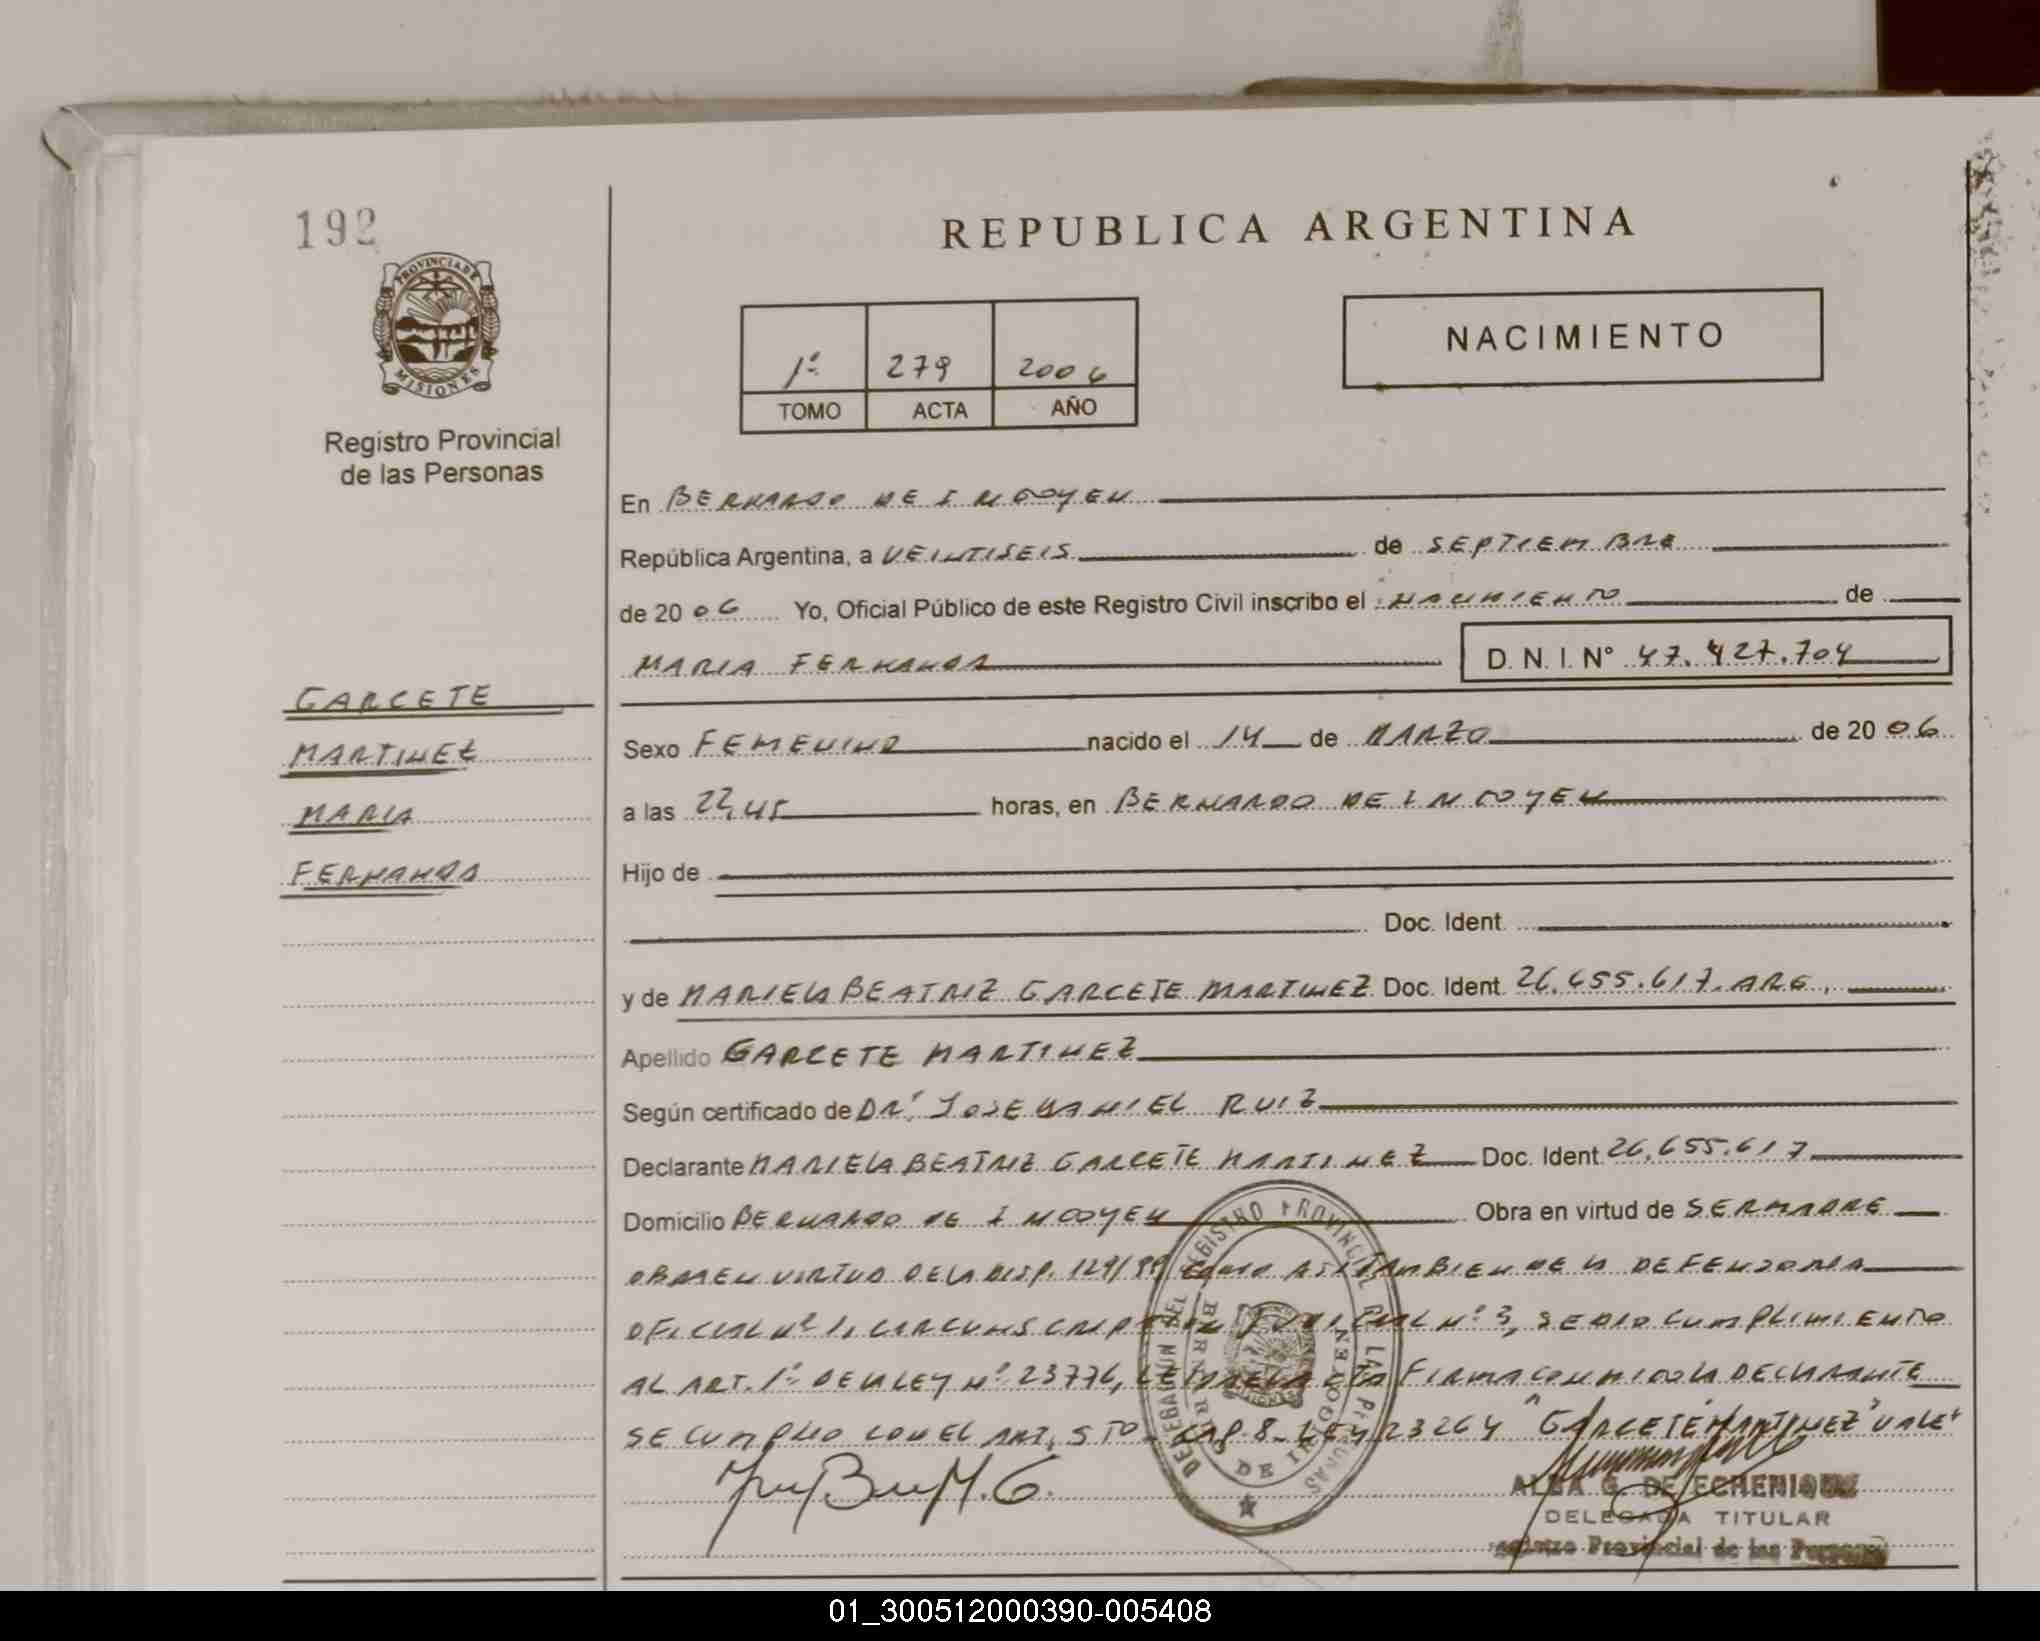 192
PROVINCIA DE
MISIONES
Registro Provincial
de las Personas
REPUBLICA ARGENTINA
1º 279 2006
TOMO ACTA AÑO
NACIMIENTO
En BERNARDO DE IRIGOYEN
República Argentina, a VEINTISEIS de SEPTIEMBRE
de 2006 Yo, Oficial Público de este Registro Civil inscribo el NACIMIENTO de
MARIA FERNANDA D. N. I. Nº 47.427.704
GARCETE
MARTINEZ
MARIA
FERNANDA
Sexo FEMENINO nacido el 14 de MARZO de 2006
a las 22,45 horas, en BERNARDO DE IRIGOYEN
Hijo de
Doc. Ident.
y de MARIELA BEATRIZ GARCETE MARTINEZ Doc. Ident. 26.655.617. ARG.
Apellido GARCETE MARTINEZ
Según certificado de DR. JOSE DANIEL RUIZ
Declarante MARIELA BEATRIZ GARCETE MARTINEZ Doc. Ident. 26.655.617
Domicilio BERNARDO DE IRIGOYEN Obra en virtud de SER MADRE
OBRA EN VIRTUD DE LA DISP. 129/89 COMO ASI TAMBIEN DE LA DEFENSORIA
OFICIAL Nº 1, CIRCUNSCRIPCION JUDICIAL Nº 3, SE DIO CUMPLIMIENTO
AL ART. 1º DE LA LEY Nº 23776, LEIDA EL ACTA FIRMA CONMIGO LA DECLARANTE
SE CUMPLIO CON EL ART. 5TO - CAP 8 - LEY 23264 "GARCETE MARTINEZ" VALE"
DELEGACION DEL REGISTRO PROVINCIAL DE LAS PERSONAS
BERNARDO DE IRIGOYEN
ALBA G. DE ECHENIQUE
DELEGADA TITULAR
Registro Provincial de las Personas
01_300512000390-005408